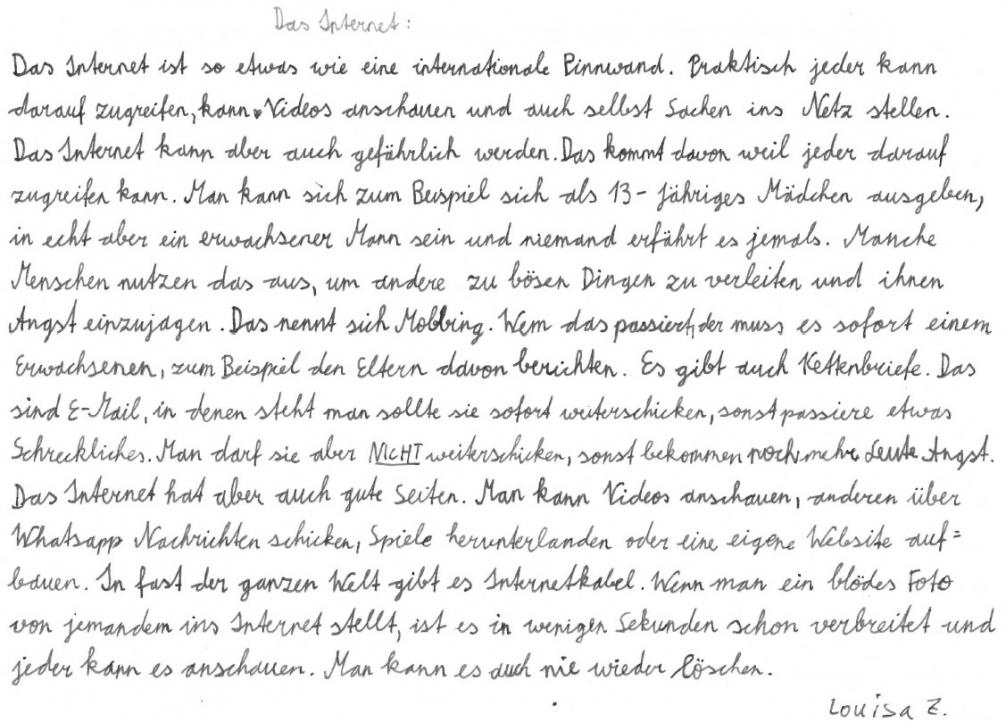 Das Internet:
Das Internet ist so etwas wie eine internationale Pinnwand. Praktisch jeder kann
darauf zugreifen, kann Videos anschauen und auch selbst Sachen ins Netz stellen.
Das Internet kann aber auch gefährlich werden. Das kommt davon weil jeder darauf
zugreifen kann. Man kann sich zum Beispiel sich als 13-jähriges Mädchen ausgeben,
in echt aber ein erwachsener Mann sein und niemand erfährt es jemals. Manche
Menschen nutzen das aus, um andere zu bösen Dingen zu verleiten und ihnen
Angst einzujagen. Das nennt sich Mobbing. Wem das passiert, der muss es sofort einem
Erwachsenen, zum Beispiel den Eltern davon berichten. Es gibt auch Kettenbriefe. Das
sind E-Mail, in denen steht man sollte sie sofort weiterschicken, sonst passiere etwas
Schreckliches. Man darf sie aber NICHT weiterschicken, sonst bekommen noch mehr Leute Angst.
Das Internet hat aber auch gute Seiten. Man kann Videos anschauen, anderen über
Whatsapp Nachrichten schicken, Spiele herunterlanden oder eine eigene Website auf=
bauen. In fast der ganzen Welt gibt es Internetkabel. Wenn man ein blödes Foto
von jemandem ins Internet stellt, ist es in wenigen Sekunden schon verbreitet und
jeder kann es anschauen. Man kann es auch nie wieder löschen.
Louisa Z.